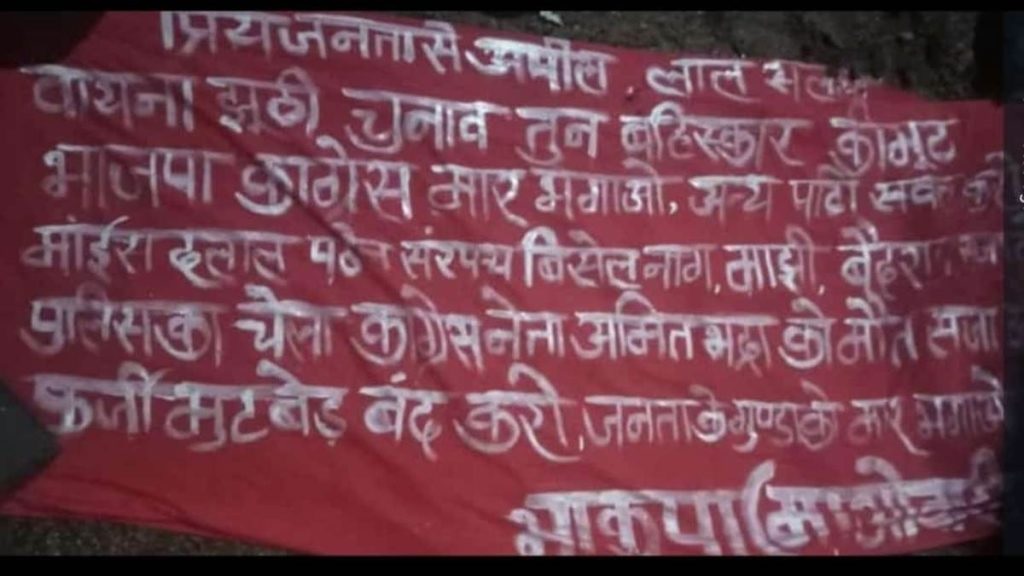 प्रिय जनता से अपील, लाल सलाम
वायना झूठी चुनाव तुन बहिस्कार कीमट
भाजपा कांग्रेस मार भगाओ, अन्य पार्टी
माईरा दलाल सरपंच बिसेल नाग, माझी,
पुलिस का चेला कांग्रेस नेता अमित भद्रा को मौत सजा
फर्जी मुटबेड़ बंद करो, जनता के गुण्डा के मार भगाओ
भाकपा (माओवादी